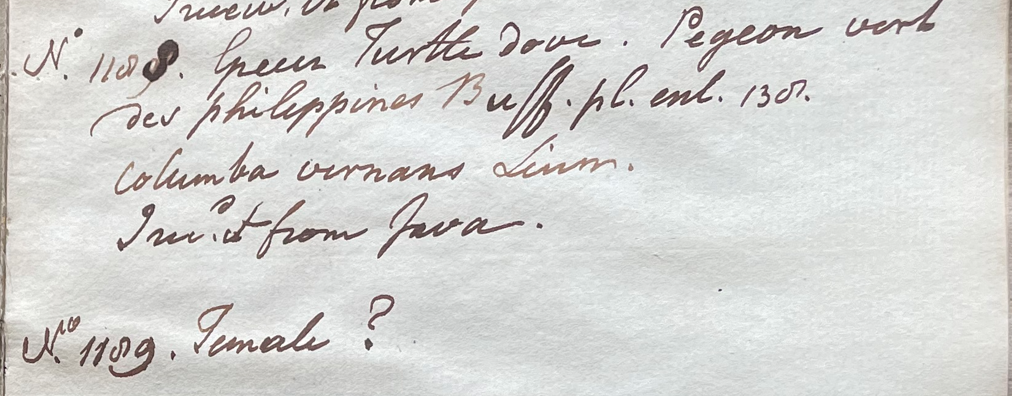 from
N.º 1188. Green Turtle Dove. Pegeon vert
des philippines Buff. pl. enl. 138.
Columba vernans Linn.
from Java.
N.ro 1189. Female ?